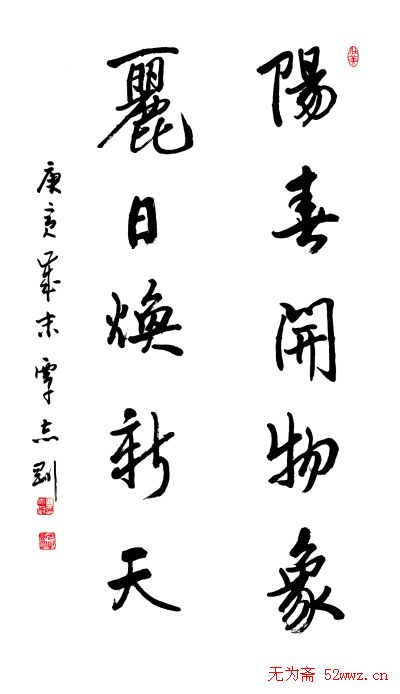 陽春開物象
麗日煥新天
庚寅歲末覃志剛
无为斋 52wwz.cn